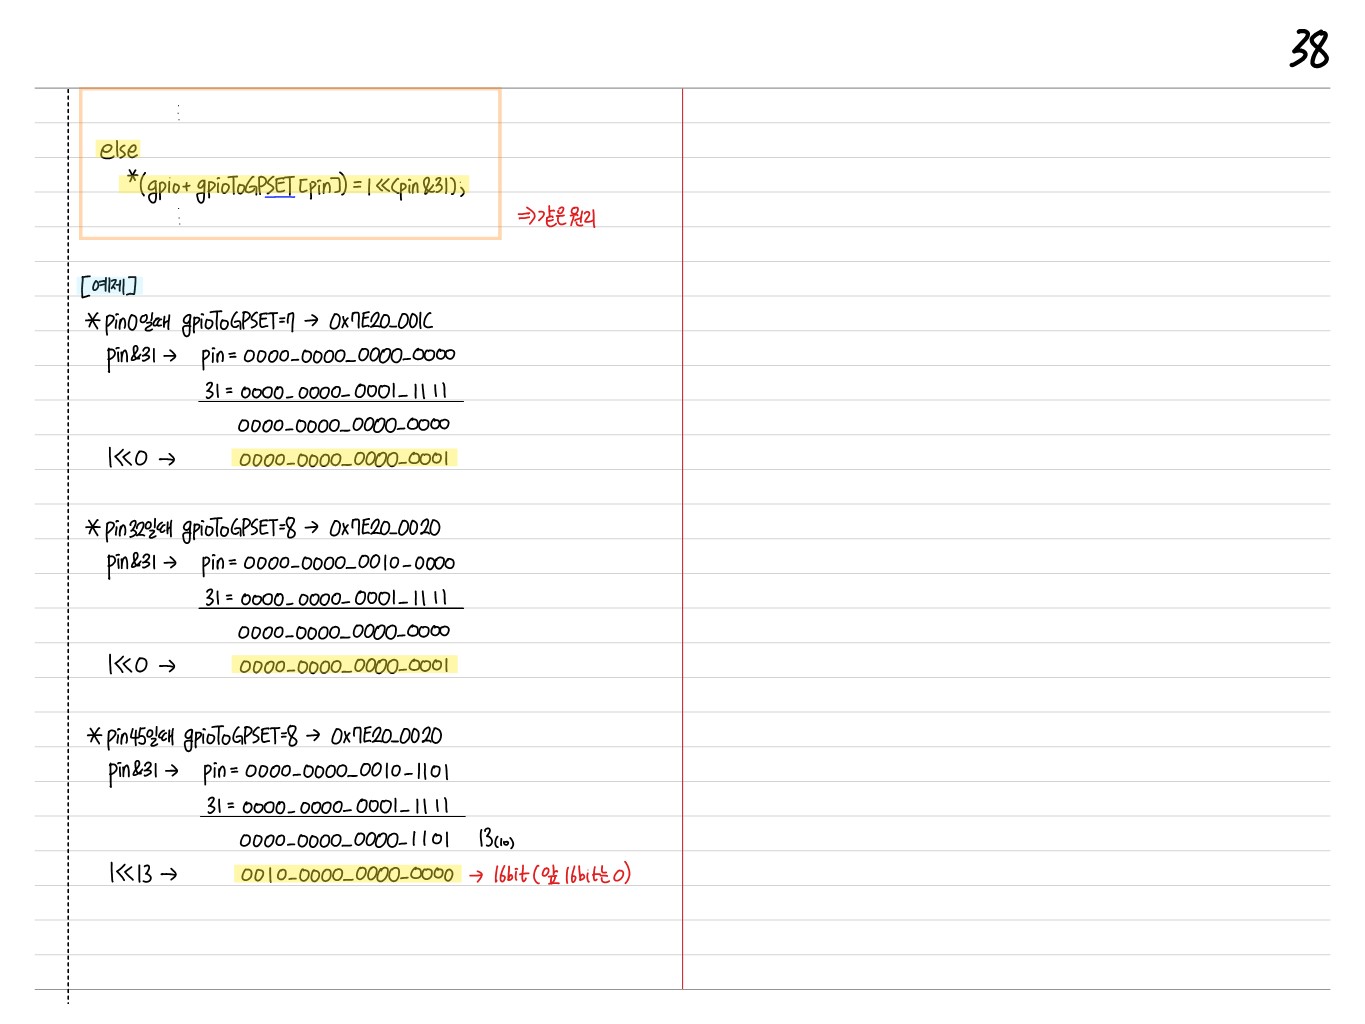 38
else
*(gpio+ gpioToGPSET[pin]) = 1<<(pin&31);
⇒ 같은 원리
[예제]
* pin0일때 gpioToGPSET=7 → 0x7E20_001C
pin&31 → pin = 0000_0000_0000_0000
31 = 0000_0000_0001_1111
0000_0000_0000_0000
1<<0 → 0000_0000_0000_0001
* pin32일때 gpioToGPSET=8 → 0x7E20_0020
pin&31 → pin = 0000_0000_0010_0000
31 = 0000_0000_0001_1111
0000_0000_0000_0000
1<<0 → 0000_0000_0000_0001
* pin45일때 gpioToGPSET=8 → 0x7E20_0020
pin&31 → pin = 0000_0000_0010_1101
31 = 0000_0000_0001_1111
0000_0000_0000_1101 13(10)
1<<13 → 0010_0000_0000_0000 → 16bit (앞 16bit는 0)